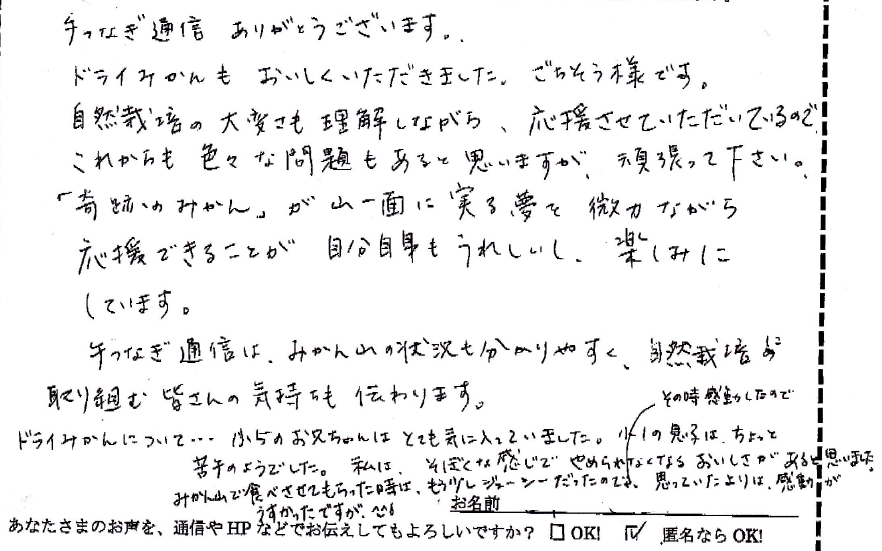 手つなぎ通信 ありがとうございます。
ドライみかんも おいしくいただきました。ごちそう様です。
自然栽培の大変さも理解しながら、応援させていただいているので、
これからも色々な問題もあると思いますが、頑張って下さい。
「奇跡のみかん」が山一面に実る夢を微力ながら
応援できることが自分自身もうれしいし、楽しみに
しています。
手つなぎ通信は、みかん山の状況も分かりやすく、自然栽培に
取り組む皆さんの気持ちも伝わります。
その時感動したので
ドライみかんについて… 小5のお兄ちゃんはとても気に入っていました。小1の息子は、ちょっと
苦手のようでした。私は、そぼくな感じでやめられなくなるおいしさがあると思いました。
みかん山で食べさせてもらった時は、もう少しジューシーだったので、思っていたよりは、感動が
うすかったですが、
お名前
あなたさまのお声を、通信やHPなどでお伝えしてもよろしいですか? □ OK! ☑ 匿名なら OK!